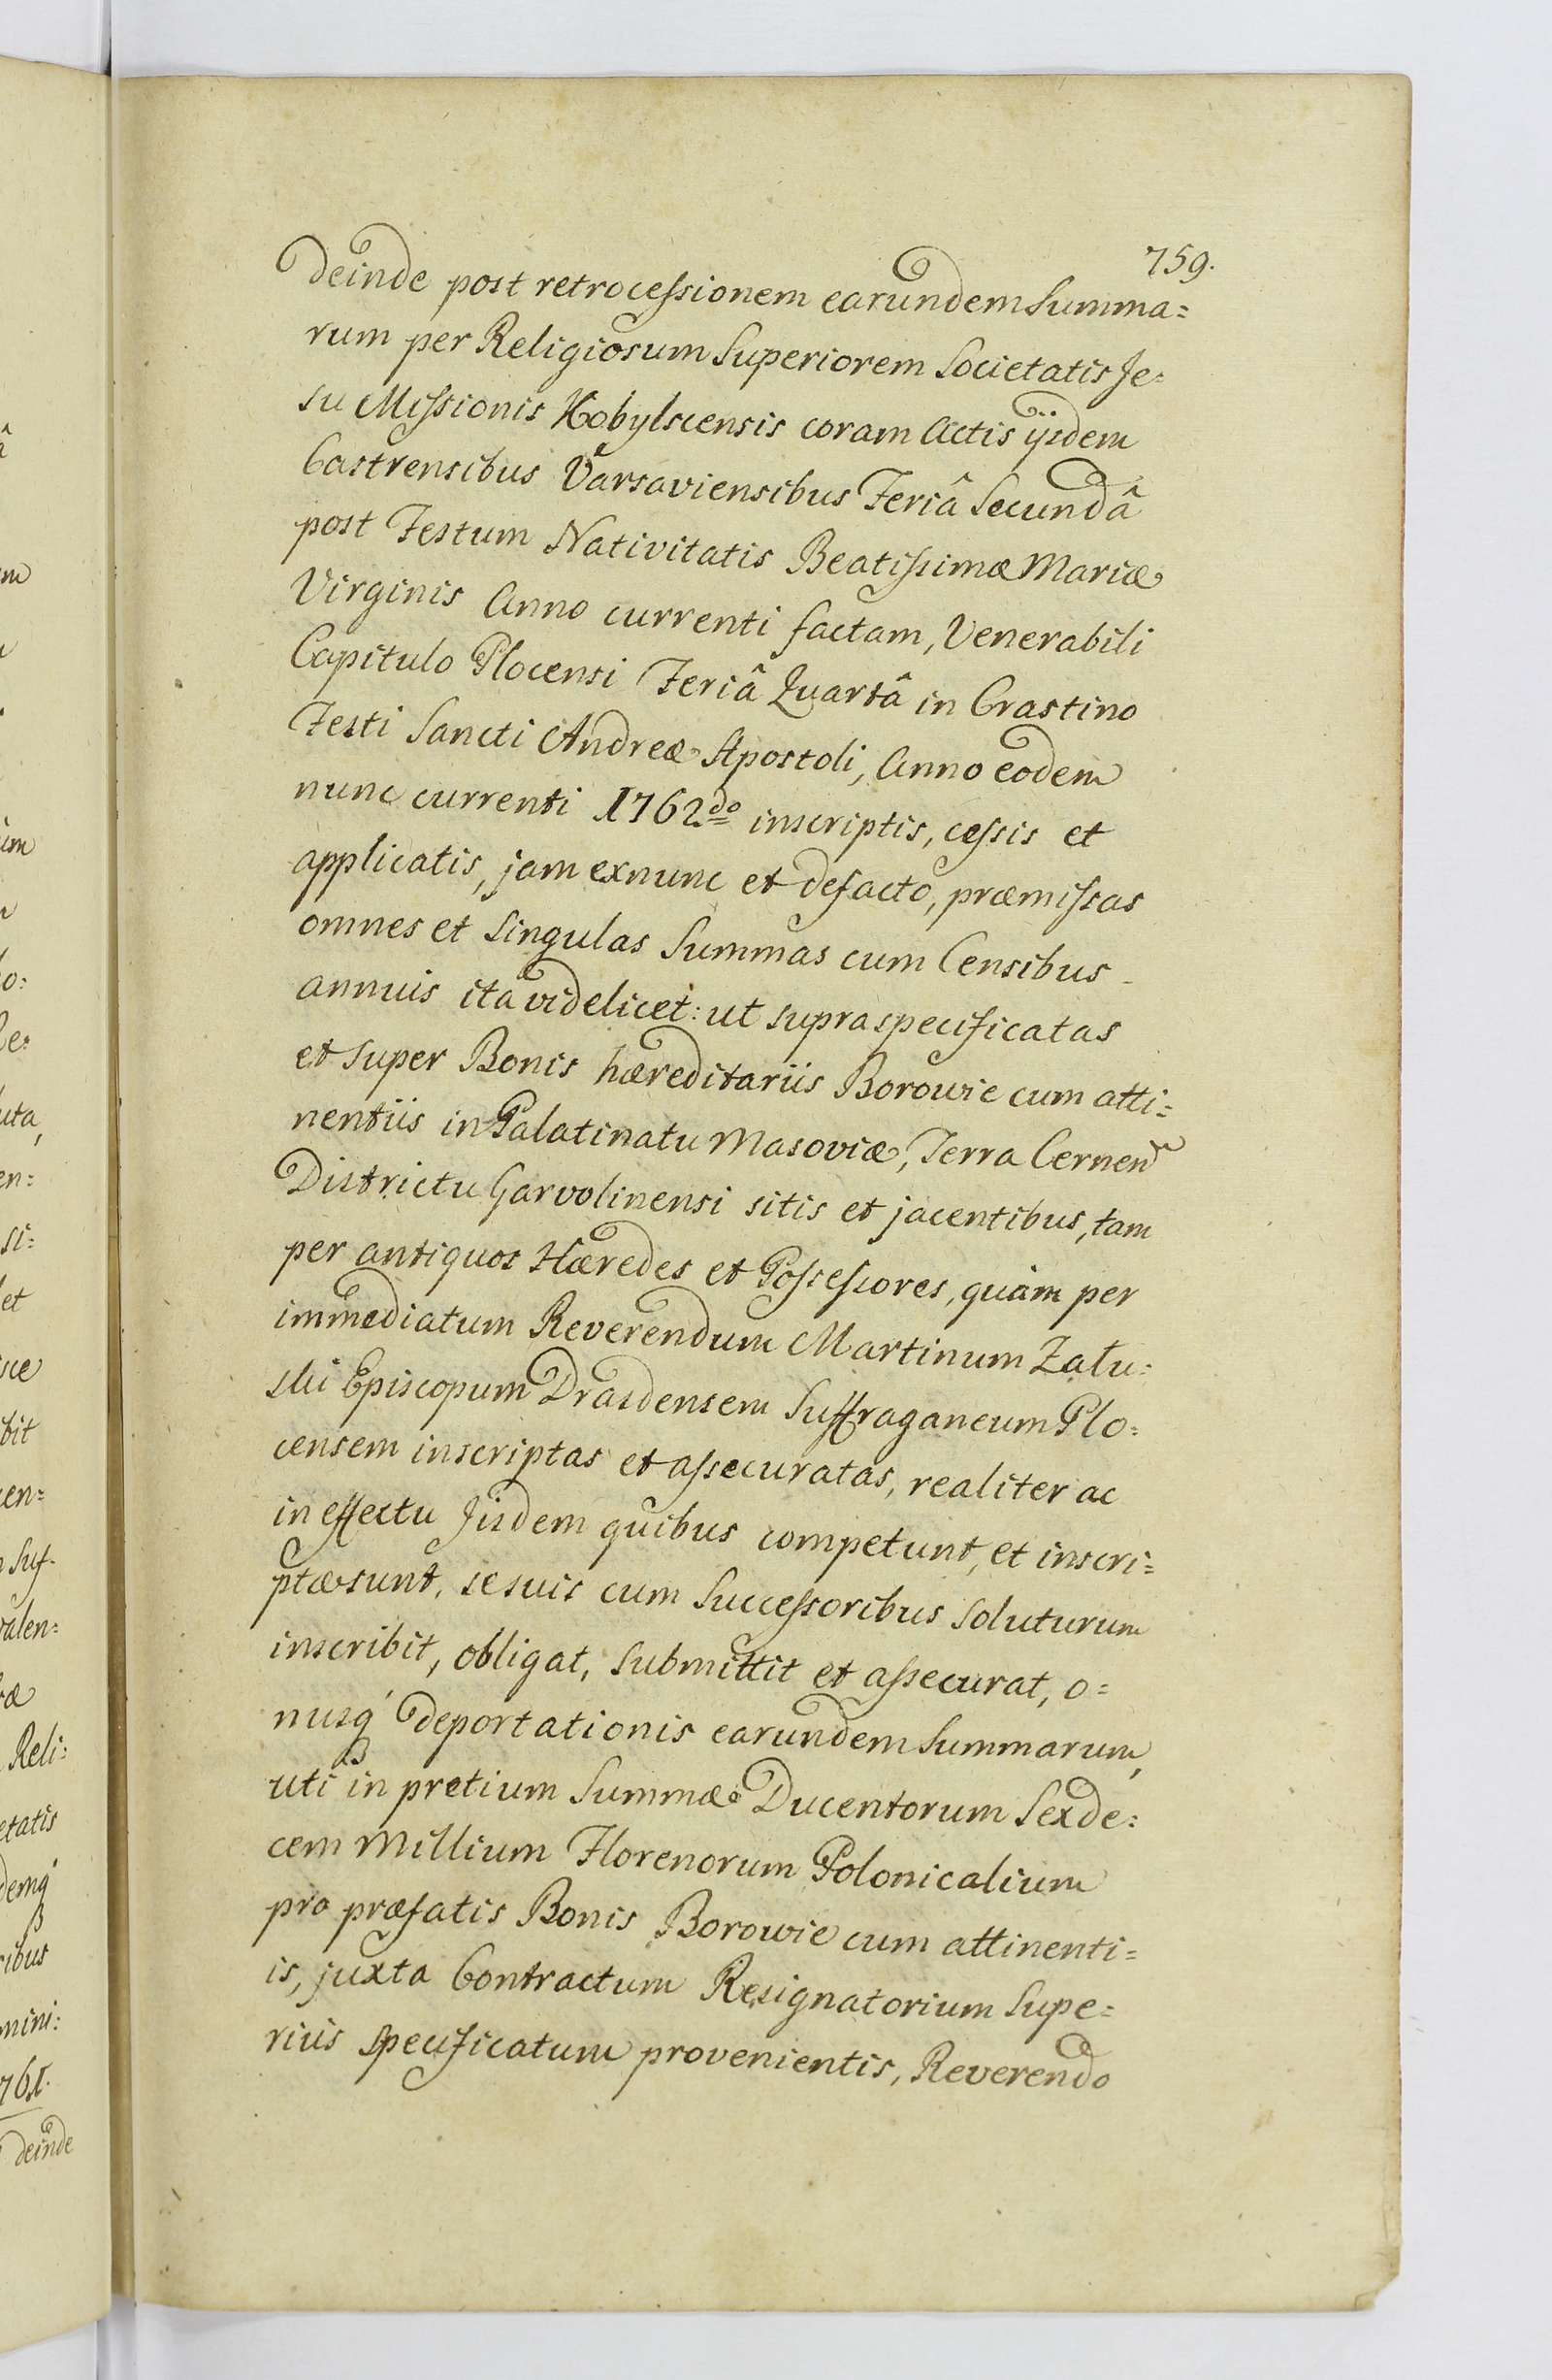 759.
deinde post retrocessionem earundem Summa=
rum per Religiosum Superiorem Societatis Je=
su Missionis Kobylscensis coram Actis ijsdem
Castrensibus Varsaviensibus Feriâ Secundâ
post Festum Nativitatis Beatissimæ Mariæ
Virginis Anno currenti factam, Venerabili
Capitulo Plocensi Feriâ Quartâ in Crastino
Festi Sancti Andreæ Apostoli, Anno eodem
nunc currenti 1762do inscriptis, cessis et
applicatis, jam exnunc et defacto, præmissas
omnes et singulas Summas cum Censibus
annuis ita videlicet: ut supra specificatas
et super Bonis hæreditariis Borowie cum atti=
nentiis in Palatinatu Masoviæ, Terra Cernen
Districtu Garvolinensi sitis et jacentibus, tam
per antiquos Hæredes et Possessores, quàm per
immediatum Reverendum Martinum Zału=
ski Episcopum Drasdensem Suffraganeum Plo=
censem inscriptas et assecuratas, realiter ac
in effectu Jisdem quibus competunt, et inscri=
ptæ sunt, se suis cum Successoribus soluturum
inscribit, obligat, submittit et assecurat, o=
nusq́ deportationis earundem Summarum,
uti in pretium Summæ Ducentorum Sexde=
cem Millium Florenorum Polonicalium
pro præfatis Bonis Borowie cum attinenti=
is, juxta Contractum Resignatorium Supe=
rius specificatum provenientis, Reverendo
um
Re=
uta,
en=
si=
et
sce
bit
cen=
Suf-
valen=
Reli=
etatis
demq́
ribus
mini=
761.
deinde